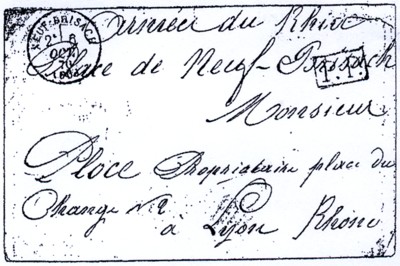 Armée du Rhin
NEUF-BRISACH
2E 6
OCT
70
Place de Neuf-Brisach
P.P.
Monsieur
Place Propriétaire place du
Change N° 2
à Lyon Rhône